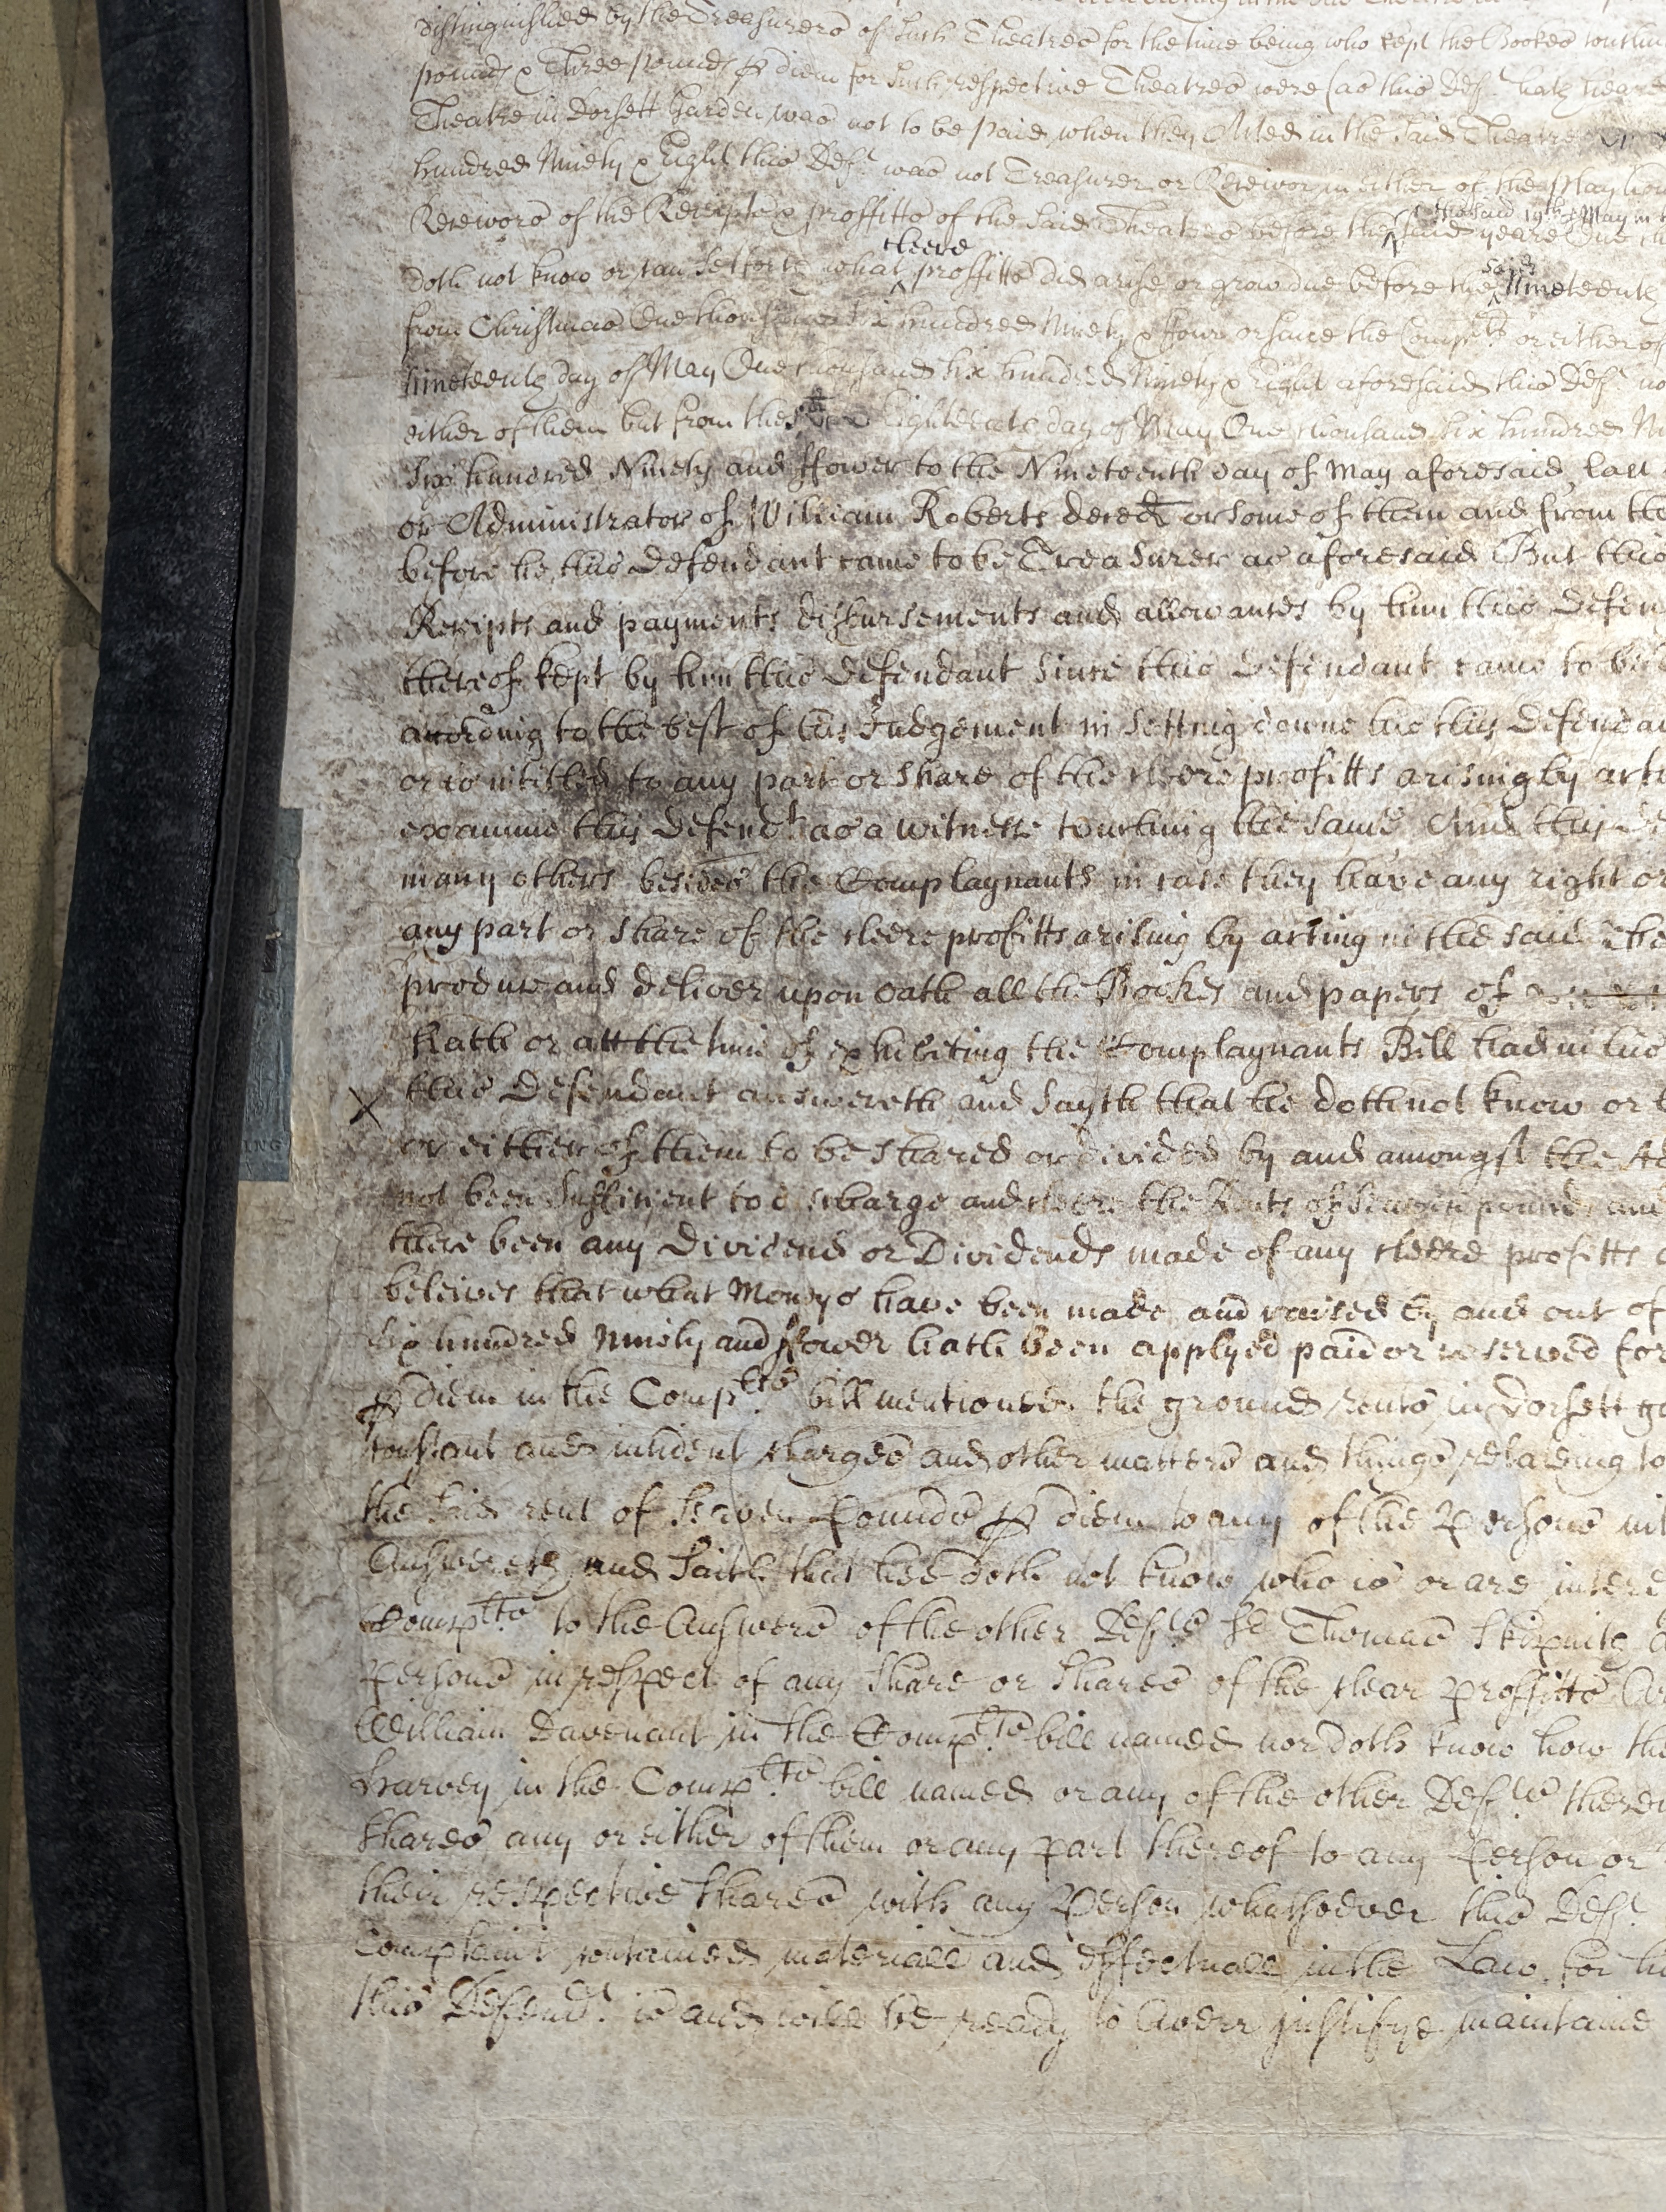 distinguished by the Treasurers of such Theatres for the time being who kept the Bookes
pounds & Three pounds p diem for such respective Theatres were (as this Deft. hath heard
Theatre in Dorsett Garden was not to be paid when they Acted in the said Theatre
hundred Ninety & Eight this Deft. was not Treasurer or Receivor in either of the play
Receivors of the Receipts & proffitts of the said Theatres before the said 19th May in the said yeare One
doth not know or can sett forth what cleere proffitts did arise or grow due before the said Nineteenth
from Christmas One thousand six hundred Ninety & ffour or since the Complts or either of
Nineteenth day of May One thousand six hundred Ninety & Eight aforesaid this Deft. no
either of them but from the Eighteenth day of May One thousand six hundred
Six hundred Ninety and ffower to the Nineteenth day of May aforesaid last
or Administrator of William Roberts decēd or some of them and from the
before he this Defendant came to be Treasurer as aforesaid But this
Receipts and payments disbursements and allowances by him this
thereof kept by him this Defendant since this Defendant came to be
according to the best of his Judgement in setting downe his this
or is intitled to any part or share of the cleere profitts arising by
examine this Defendt as a witnesse touching the same And this
many others besides the Complaynants in case they have any right or
any part or share of the cleere profitts arising by acting in the said
produce and deliver upon oath all the Bookes and papers of
Hath or att the time of exhibiting the Complaynants Bill had in his
X this Defendant answereth and Sayth that he doth not know or
or either of them to be shared or divided by and amongst the
not been sufficient to discharge and cleere the Rents of seaven pounds and
there been any Dividend or Dividends made of any cleere profitts
beleives that what Moneys have been made and raised by and out of
six hundred Ninety and ffower hath been applyed paid or reserved for
p diem in the Complts bill mentioned the ground rents in Dorsett
constant and incident charges and other matters and things relateing to
the said rent of seaven Pounds p diem to any of the Persons
Answereth and saith that hee doth not know who is or are
Complts to the Answers of the other Defts Sr Thomas Skipwith
Persons in respect of any share or shares of the clear proffitts
William Davenant in the Complts bill named nor doth know how the
Harvey in the Complts bill named or any of the other Defts
shares any or either of them or any part thereof to any Person or
their respective shares with any Person whatsoever this Deft.
Complaint contained materiall and effectuall in the Law for
this Defendt. is and will be ready to Averr justifye maintaine